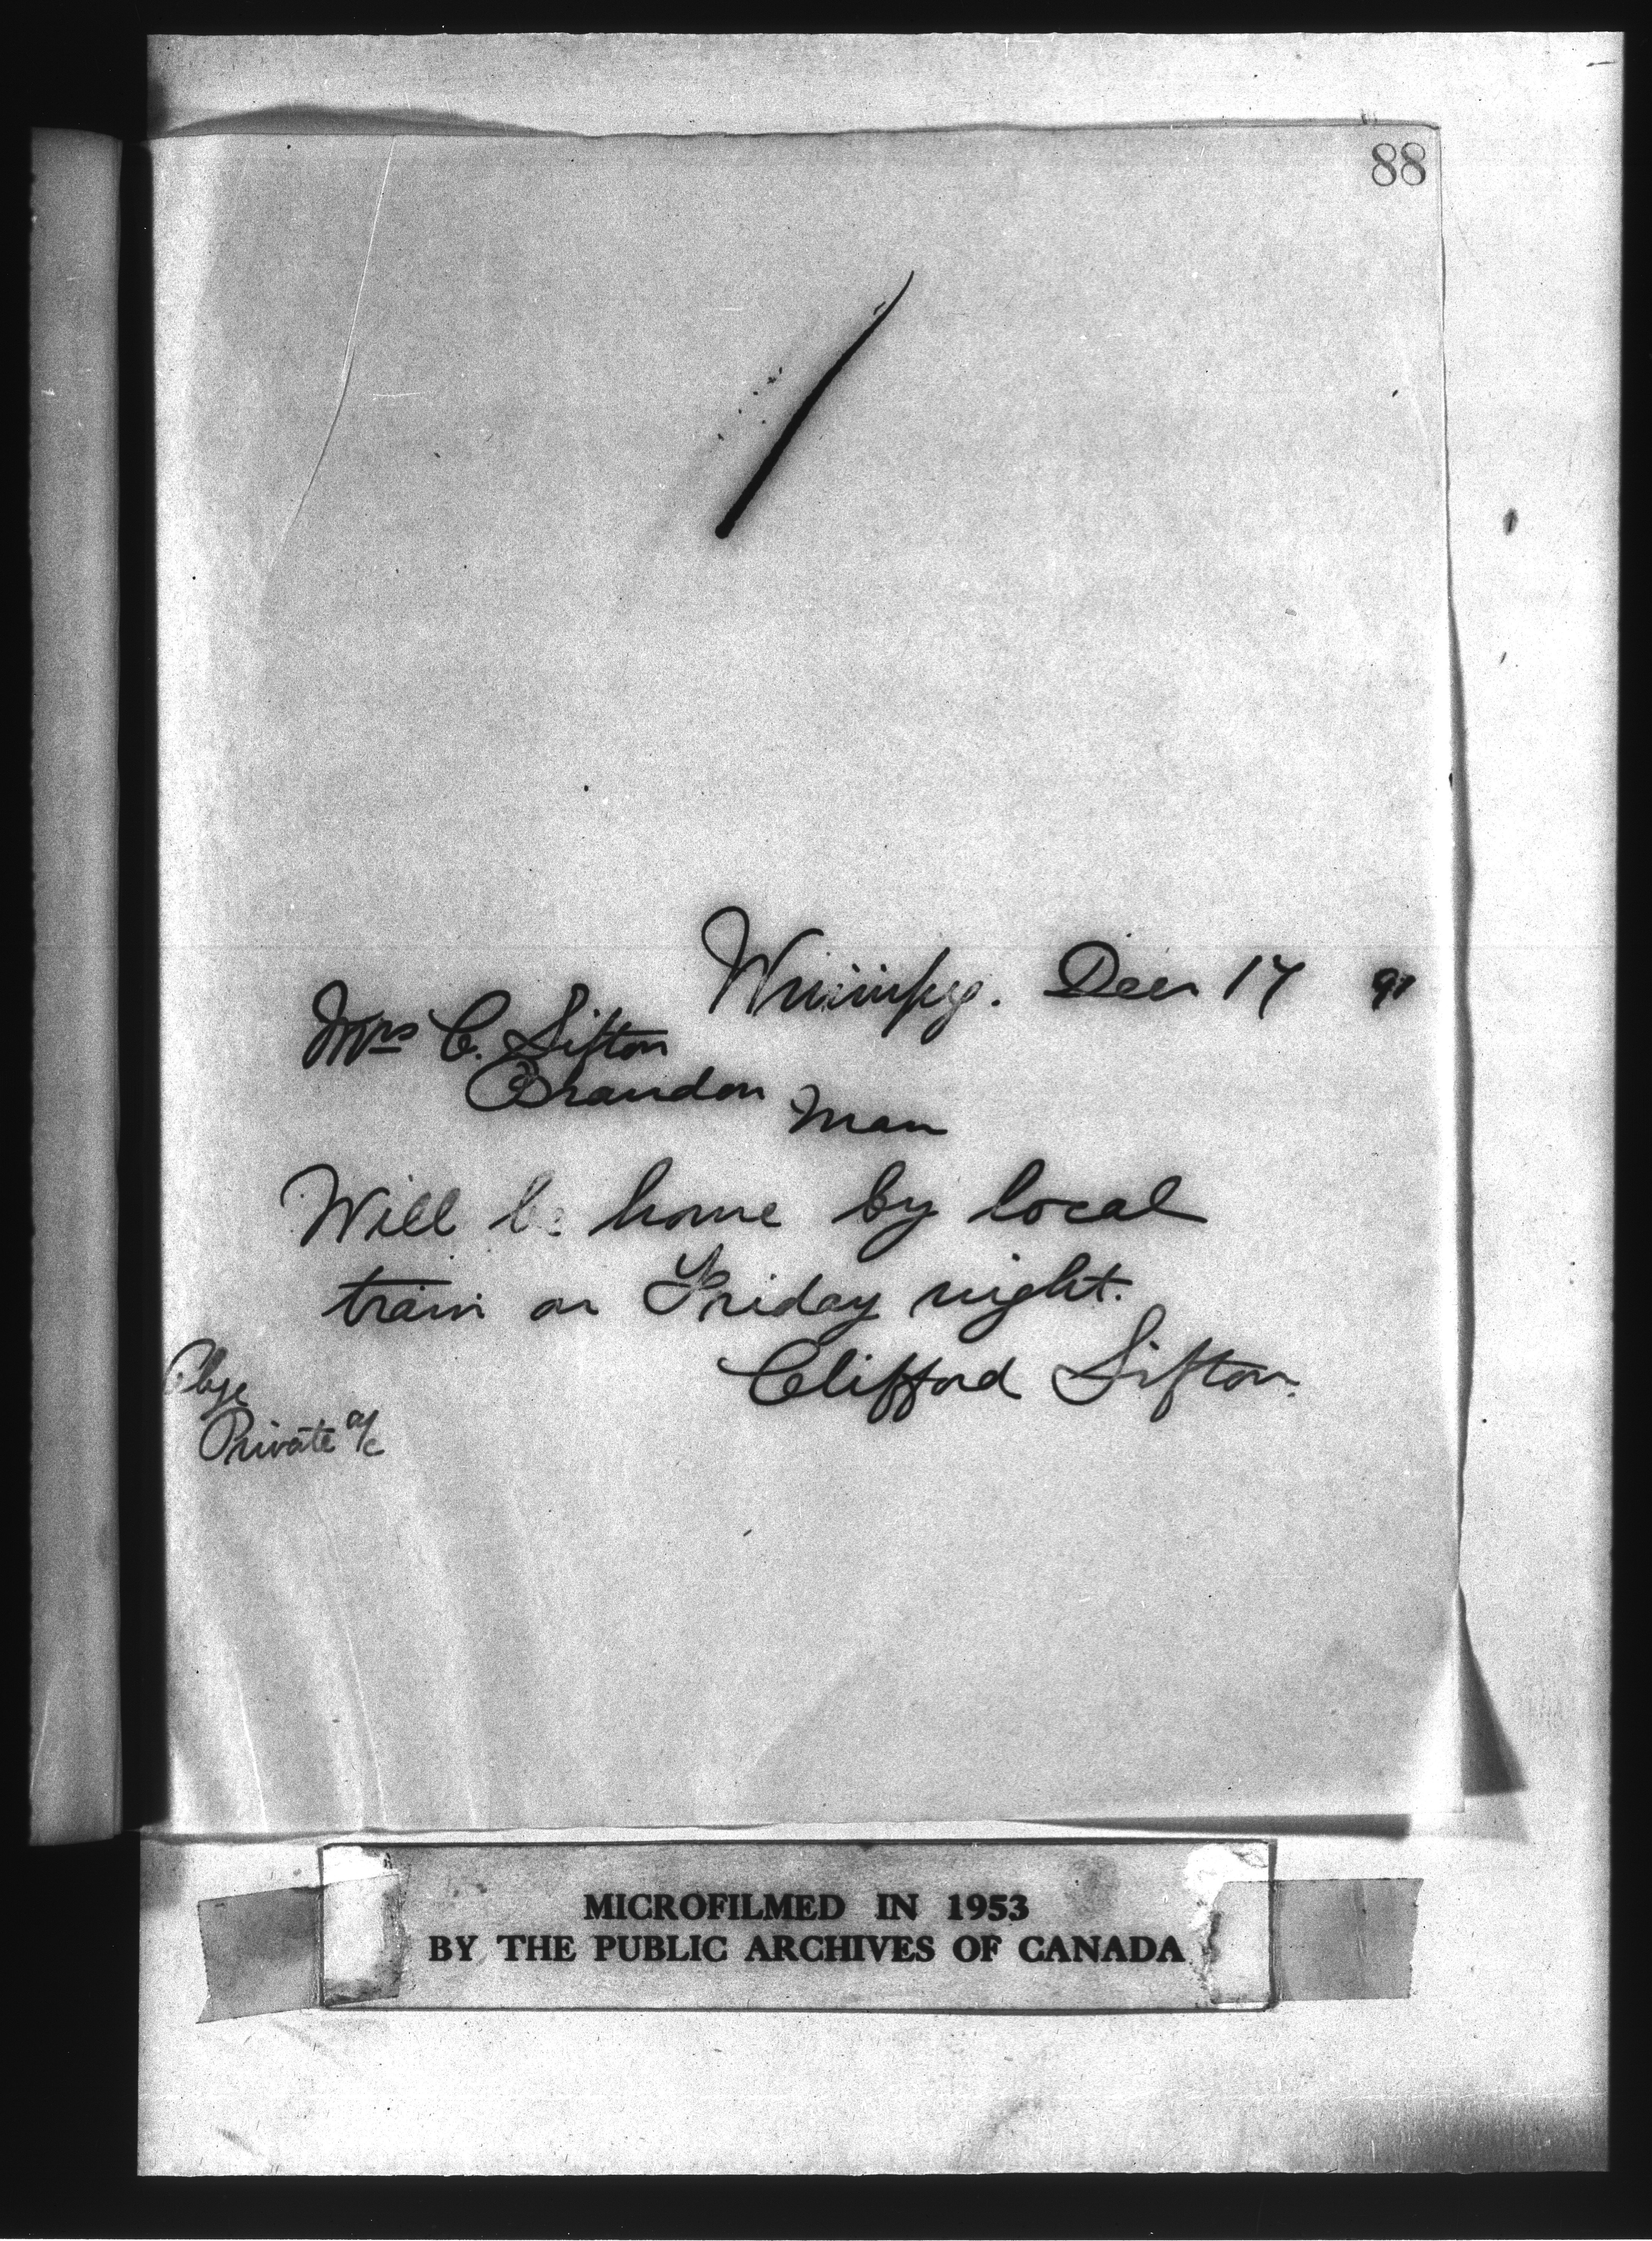 88
Winnipeg. Decr 17 91
Mrs C. Sifton
Brandon
Man
Will be home by local
train on Friday night.
Clifford Sifton.
Chge
Private a/c
MICROFILMED IN 1953
BY THE PUBLIC ARCHIVES OF CANADA